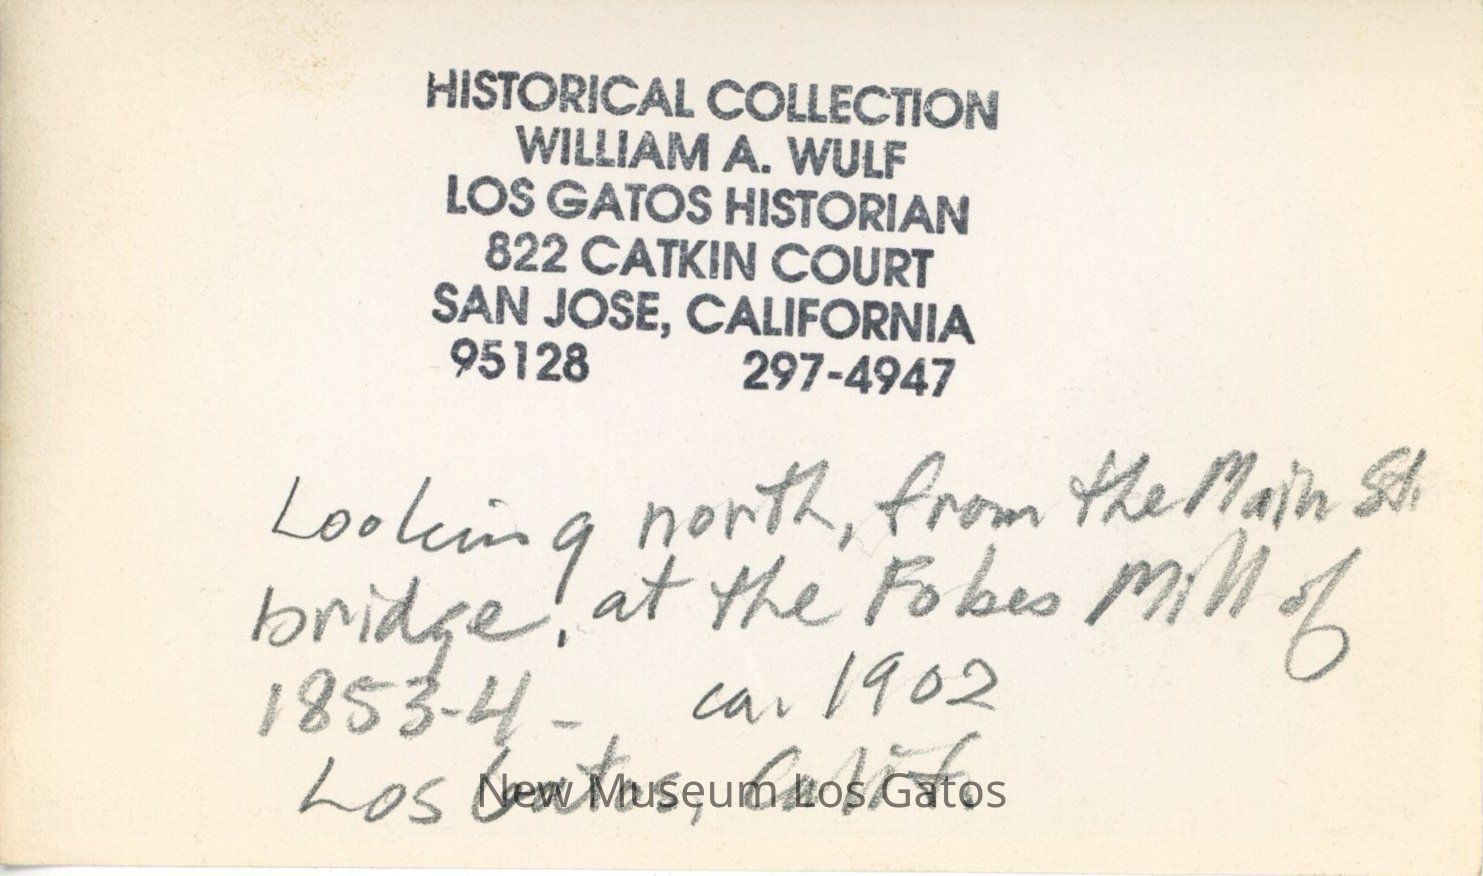 HISTORICAL COLLECTION
WILLIAM A. WULF
LOS GATOS HISTORIAN
822 CATKIN COURT
SAN JOSE, CALIFORNIA
95128 297-4947
Looking north, from the Main St.
bridge, at the Fobes Mill of
1853-4 - ca. 1902
Los Gatos, Calif.
New Museum Los Gatos